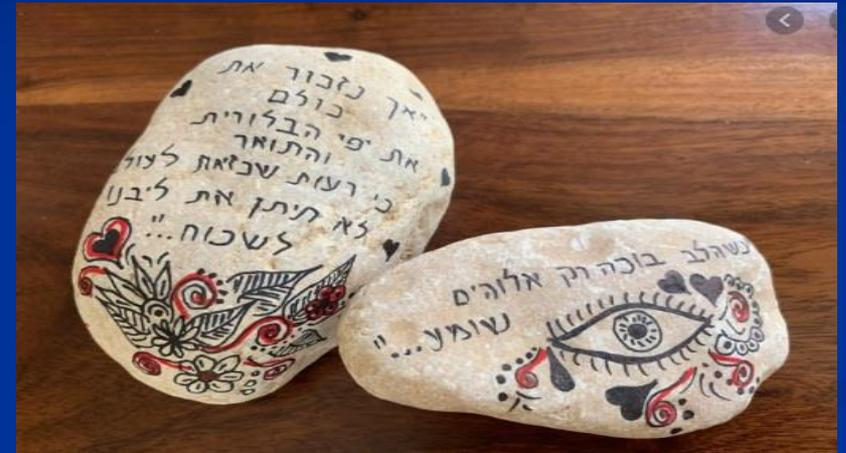 יאך נזכור את
כולם
את יפי הבלורית
והתואר
כי רעות שכזאת לעול
לא תיתן את ליבנו
לשכוח..."
כשהלב בוכה רק אלוהים
שומיע..."